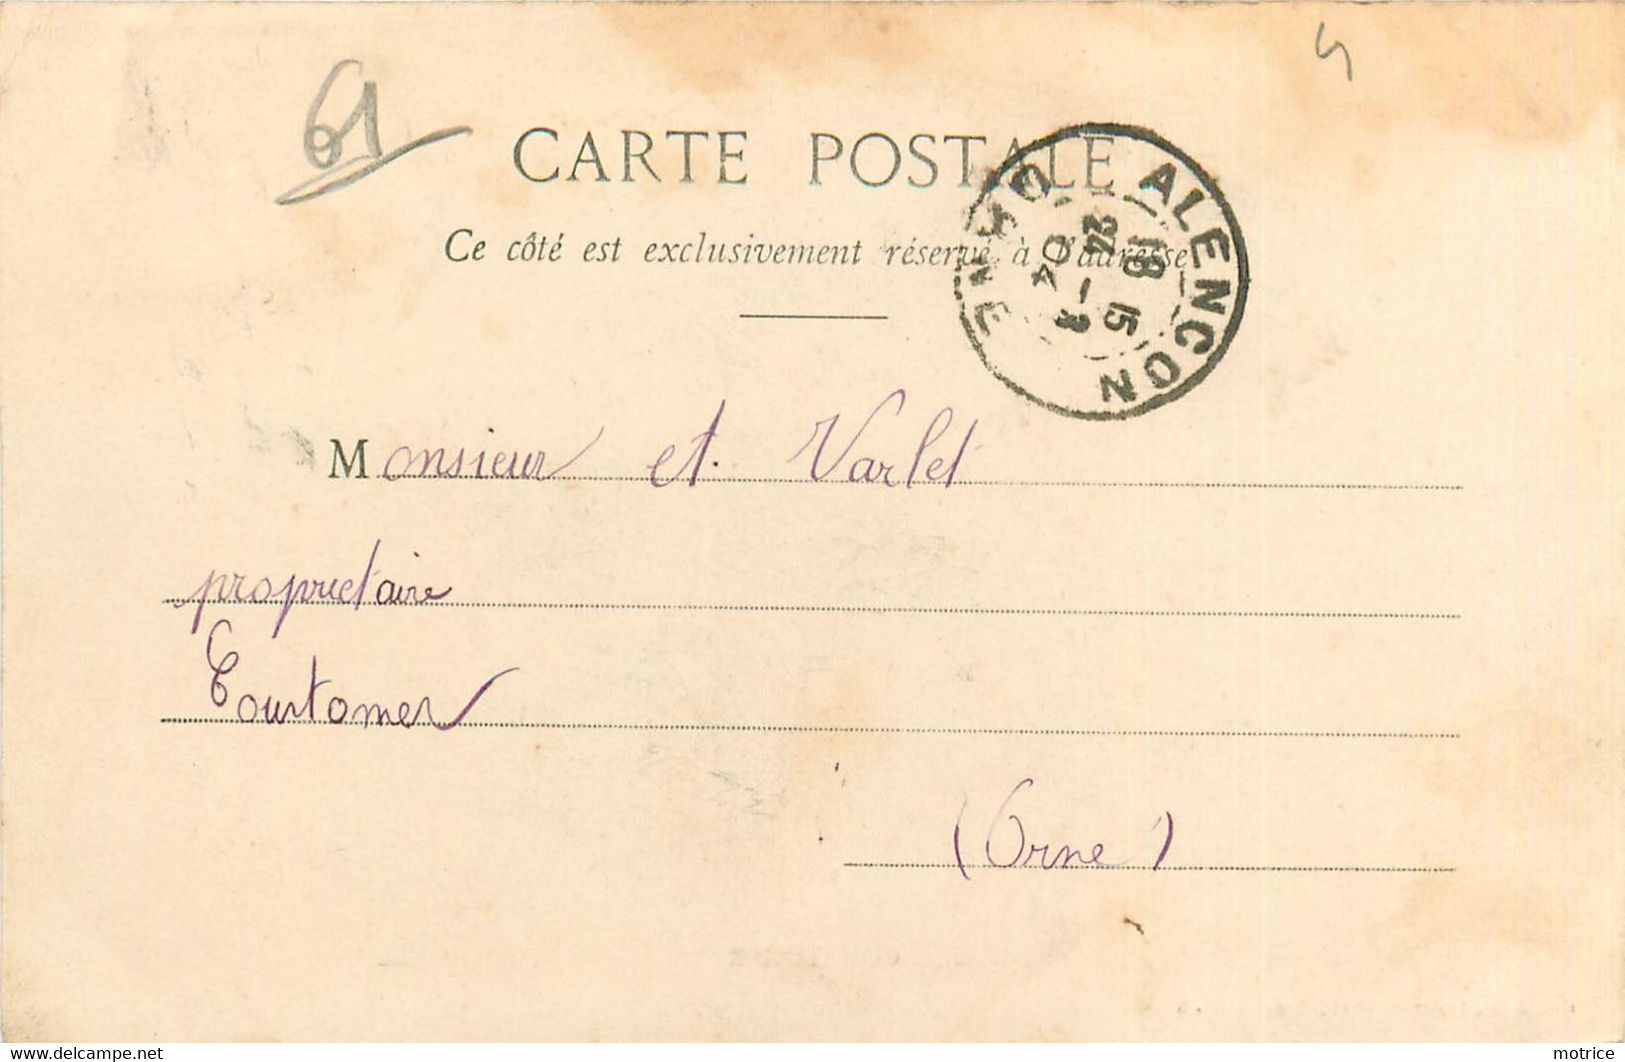 61
CARTE POSTALE
Ce côté est exclusivement réservé à l'adresse
ALENCON
ORNE
18 15
24 -3
04
Monsieur et. Varlet
proprietaire
Courtomer
(Orne)
motrice